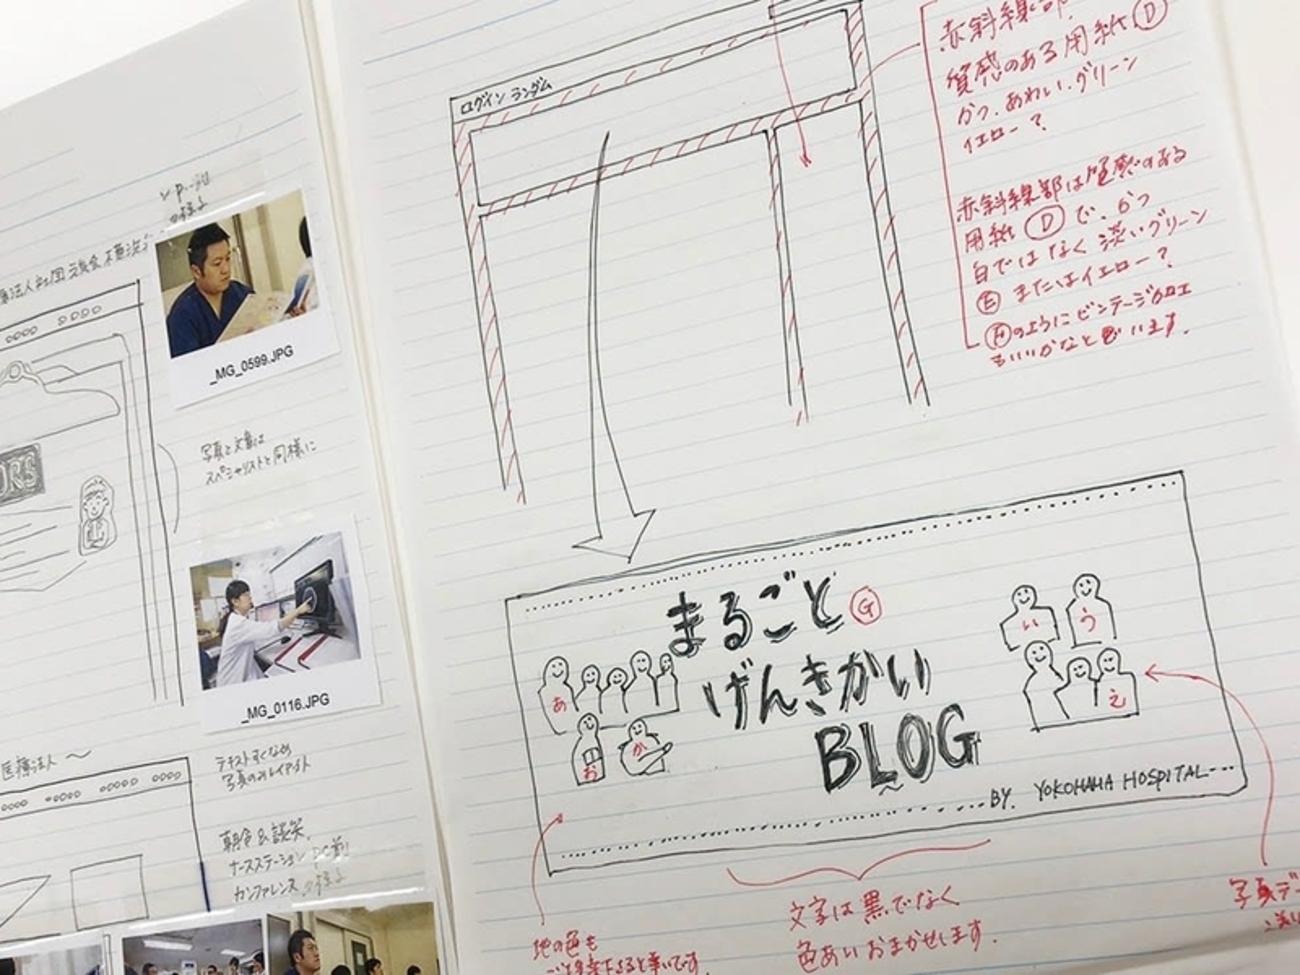 _MG_0599.JPG
写真と文章は
スペシャリストと同様に
_MG_0116.JPG
医療法人〜
テキスト少なめ
写真のみレイアウト
朝食&談笑
ナースステーション
カンファレンス
ログイン ランダム
赤斜線部
質感のある用紙 D
かつ、あわい、グリーン
イエロー?
赤斜線部は質感のある
用紙 D で、かつ
白ではなく淡いグリーン
E またはイエロー?
のようにビンテージのロゴ
もいいかなと思います。
まるごと G
げんきかい
BLOG
BY. YOKOHAMA HOSPITAL
あ
お
か
い
う
え
地の色も
文字は黒でなく
色あいおまかせします。
写真デー